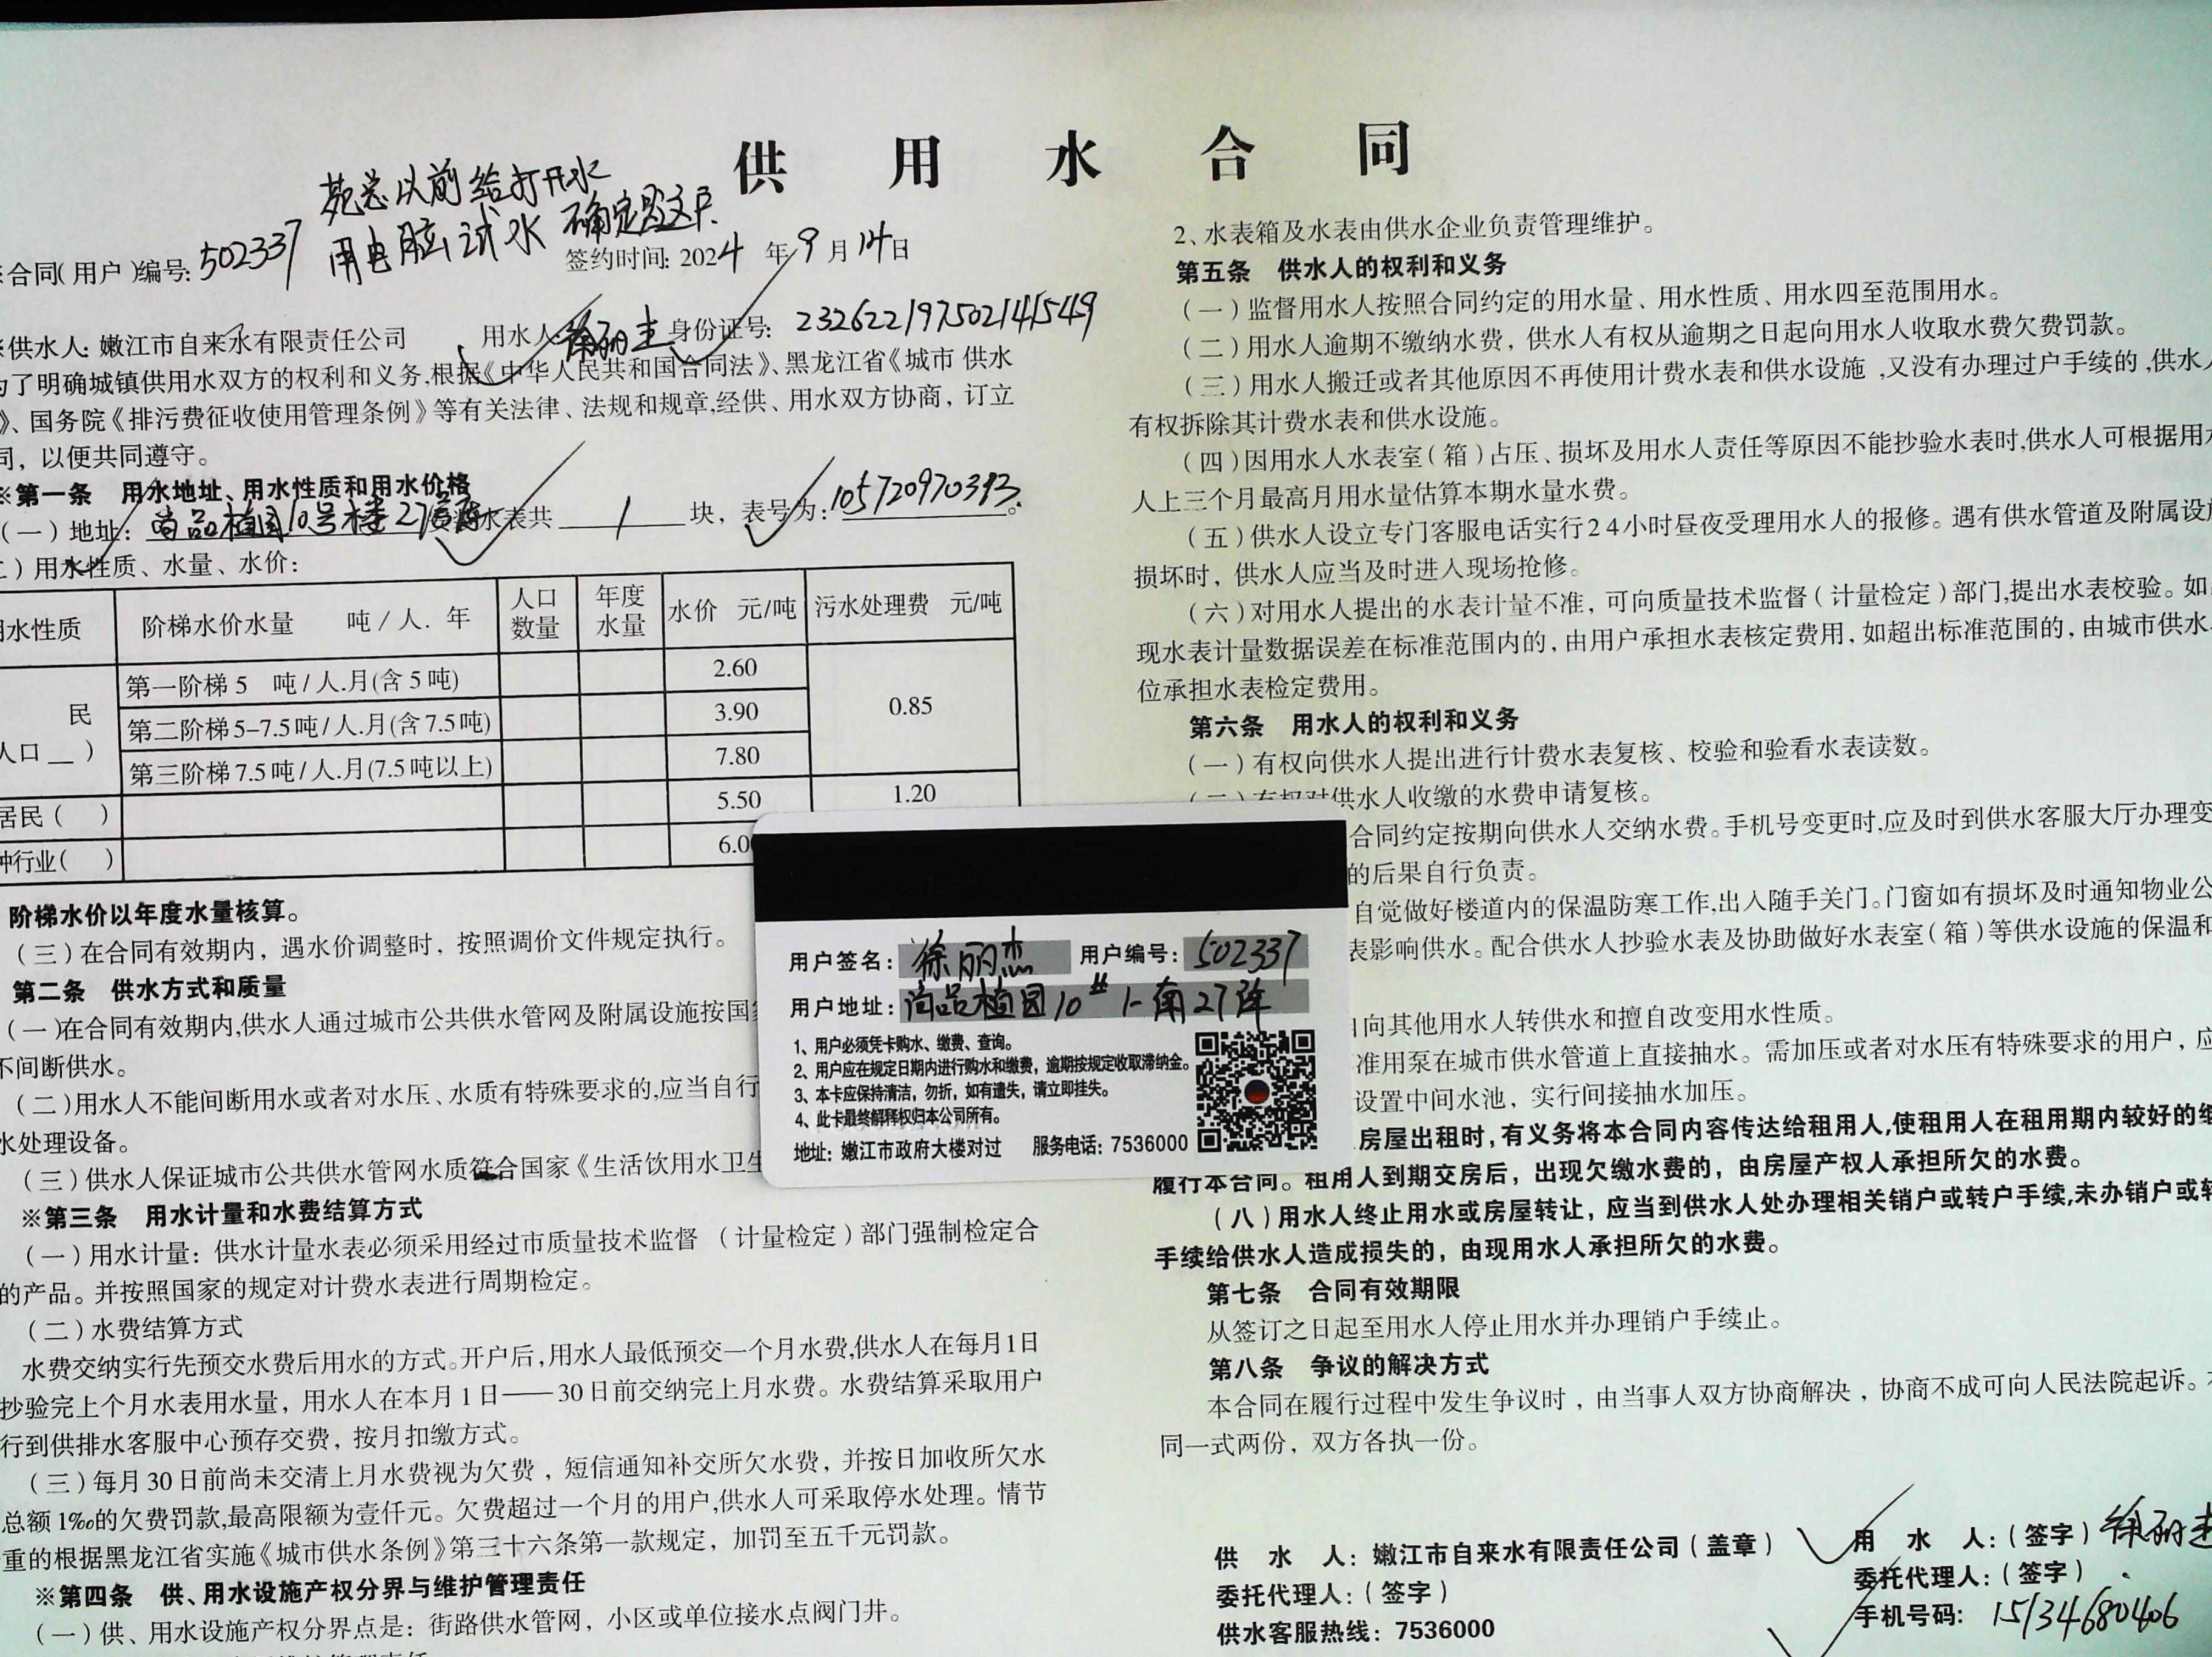 供用水合同
苑总以前给打开水
用电脑试水 确定是这户
合同(用户)编号:502337
签约时间:2024年9月14日
※供水人:嫩江市自来水有限责任公司 用水人:徐丽杰 身份证号:232622197502141549
为了明确城镇供用水双方的权利和义务,根据《中华人民共和国合同法》、黑龙江省《城市供水
》、国务院《排污费征收使用管理条例》等有关法律、法规和规章,经供、用水双方协商,订立
同,以便共同遵守。
※第一条 用水地址、用水性质和用水价格
(一)地址:尚品植园10号楼27 水表共 1 块,表号为:105720970393。
二)用水性质、水量、水价:
用水性质 阶梯水价水量 吨/人.年 人口数量 年度水量 水价 元/吨 污水处理费 元/吨
民
人口__)
第一阶梯5 吨/人.月(含5吨) 2.60 0.85
第二阶梯5-7.5吨/人.月(含7.5吨) 3.90
第三阶梯7.5吨/人.月(7.5吨以上) 7.80
居民( ) 5.50 1.20
种行业( ) 6.0
阶梯水价以年度水量核算。
(三)在合同有效期内,遇水价调整时,按照调价文件规定执行。
第二条 供水方式和质量
(一)在合同有效期内,供水人通过城市公共供水管网及附属设施按国
不间断供水。
(二)用水人不能间断用水或者对水压、水质有特殊要求的,应当自行
水处理设备。
(三)供水人保证城市公共供水管网水质符合国家《生活饮用水卫生
※第三条 用水计量和水费结算方式
(一)用水计量:供水计量水表必须采用经过市质量技术监督(计量检定)部门强制检定合
的产品。并按照国家的规定对计费水表进行周期检定。
(二)水费结算方式
水费交纳实行先预交水费后用水的方式。开户后,用水人最低预交一个月水费,供水人在每月1日
抄验完上个月水表用水量,用水人在本月1日——30日前交纳完上月水费。水费结算采取用户
行到供排水客服中心预存交费,按月扣缴方式。
(三)每月30日前尚未交清上月水费视为欠费,短信通知补交所欠水费,并按日加收所欠水
总额1‰的欠费罚款,最高限额为壹仟元。欠费超过一个月的用户,供水人可采取停水处理。情节
重的根据黑龙江省实施《城市供水条例》第三十六条第一款规定,加罚至五千元罚款。
※第四条 供、用水设施产权分界与维护管理责任
(一)供、用水设施产权分界点是:街路供水管网,小区或单位接水点阀门井。
2、水表箱及水表由供水企业负责管理维护。
第五条 供水人的权利和义务
(一)监督用水人按照合同约定的用水量、用水性质、用水四至范围用水。
(二)用水人逾期不缴纳水费,供水人有权从逾期之日起向用水人收取水费欠费罚款。
(三)用水人搬迁或者其他原因不再使用计费水表和供水设施,又没有办理过户手续的,供水人
有权拆除其计费水表和供水设施。
(四)因用水人水表室(箱)占压、损坏及用水人责任等原因不能抄验水表时,供水人可根据用水
人上三个月最高月用水量估算本期水量水费。
(五)供水人设立专门客服电话实行24小时昼夜受理用水人的报修。遇有供水管道及附属设施
损坏时,供水人应当及时进入现场抢修。
(六)对用水人提出的水表计量不准,可向质量技术监督(计量检定)部门,提出水表校验。如
现水表计量数据误差在标准范围内的,由用户承担水表核定费用,如超出标准范围的,由城市供水
位承担水表检定费用。
第六条 用水人的权利和义务
(一)有权向供水人提出进行计费水表复核、校验和验看水表读数。
(二)有权对供水人收缴的水费申请复核。
合同约定按期向供水人交纳水费。手机号变更时,应及时到供水客服大厅办理变
的后果自行负责。
自觉做好楼道内的保温防寒工作,出入随手关门。门窗如有损坏及时通知物业公
表影响供水。配合供水人抄验水表及协助做好水表室(箱)等供水设施的保温和
向其他用水人转供水和擅自改变用水性质。
准用泵在城市供水管道上直接抽水。需加压或者对水压有特殊要求的用户,应
设置中间水池,实行间接抽水加压。
房屋出租时,有义务将本合同内容传达给租用人,使租用人在租用期内较好的继
履行本合同。租用人到期交房后,出现欠缴水费的,由房屋产权人承担所欠的水费。
(八)用水人终止用水或房屋转让,应当到供水人处办理相关销户或转户手续,未办销户或转
手续给供水人造成损失的,由现用水人承担所欠的水费。
第七条 合同有效期限
从签订之日起至用水人停止用水并办理销户手续止。
第八条 争议的解决方式
本合同在履行过程中发生争议时,由当事人双方协商解决,协商不成可向人民法院起诉。
同一式两份,双方各执一份。
供水人:嫩江市自来水有限责任公司(盖章)
委托代理人:(签字)
供水客服热线:7536000
用水人:(签字)徐丽杰
委托代理人:(签字)
手机号码:15134680406
用户签名:徐丽杰 用户编号:502337
用户地址:尚品植园10# 1-南27阵
1、用户必须凭卡购水、缴费、查询。
2、用户应在规定日期内进行购水和缴费,逾期按规定收取滞纳金。
3、本卡应保持清洁,勿折,如有遗失,请立即挂失。
4、此卡最终解释权归本公司所有。
地址:嫩江市政府大楼对过 服务电话:7536000